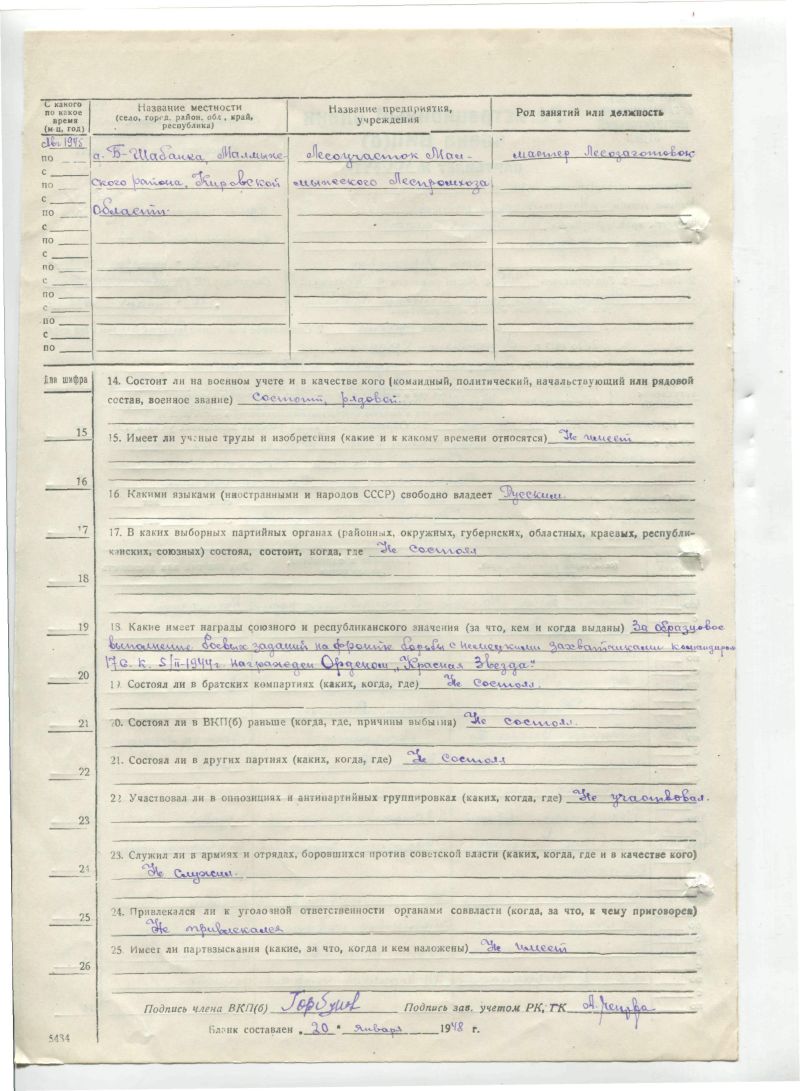 С какого по какое время (м-ц, год)
Название местности (село, город, район, обл, край, республика)
Название предприятия, учреждения
Род занятий или должность
Авг 1945 д. Б-Шабанка, Малмыж- Лесоучасток Мал- мастер Лесозаготовок
по ского района, Кировской мыжского Леспромхоза
с
по области.
с
по
с
по
с
по
с
по
с
по
Для шифра
14. Состоит ли на военном учете и в качестве кого (командный, политический, начальствующий или рядовой
состав, военное звание) состоит, рядовой.
15
15. Имеет ли ученые труды и изобретения (какие и к какому времени относятся) Не имеет
16
16 Какими языками (иностранными и народов СССР) свободно владеет Русским.
17
17. В каких выборных партийных органах (районных, окружных, губернских, областных, краевых, республи-
канских, союзных) состоял, состоит, когда, где Не состоял
18
19
18. Какие имеет награды союзного и республиканского значения (за что, кем и когда выданы) За образцовое
выполнение боевых заданий на фронте борьбы с немецкими захватчиками командиром
17 С. К. 5/II-1944г награжден Орденом „Красная Звезда"
20
19. Состоял ли в братских компартиях (каких, когда, где) Не состоял.
20. Состоял ли в ВКП(б) раньше (когда, где, причины выбытия) Не состоял.
21
21. Состоял ли в других партиях (каких, когда, где) Не состоял
22
22 Участвовал ли в оппозициях и антипартийных группировках (каких, когда, где) Не участвовал.
23
23. Служил ли в армиях и отрядах, боровшихся против советской власти (каких, когда, где и в качестве кого)
24
Не служил.
24. Привлекался ли к уголовной ответственности органами соввласти (когда, за что, к чему приговорен)
25
Не привлекался
25. Имеет ли партвзыскания (какие, за что, когда и кем наложены) Не имеет
26
Подпись члена ВКП(б) Горбунов Подпись зав. учетом РК, ГК
Бланк составлен „20" января 1948 г.
5434